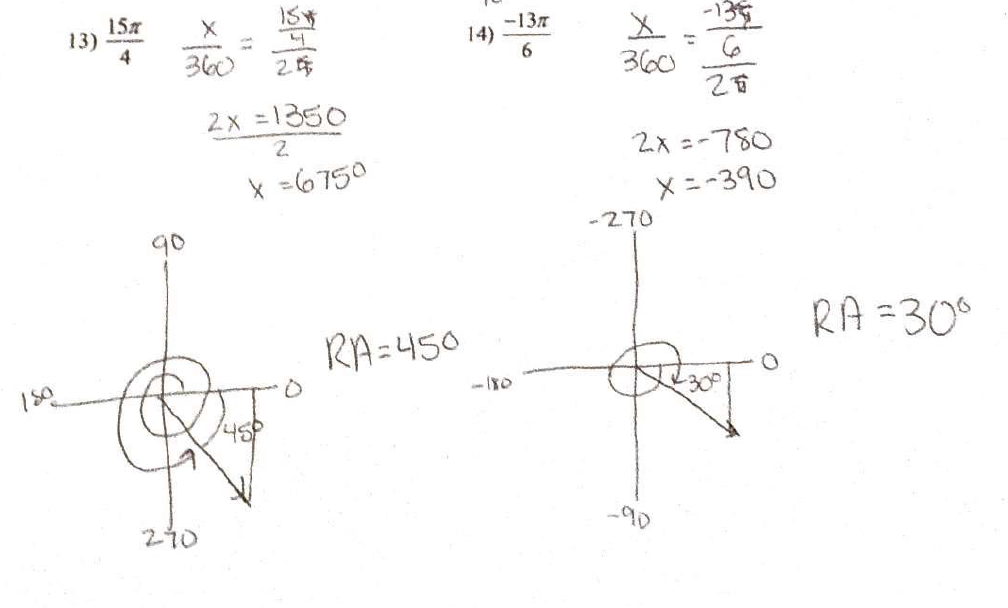 13) 15π/4
x/360 = (15π/4)/2π
2x = 1350
2
x = 675°
90
180
0
45°
270
RA = 45°
14) -13π/6
x/360 = (-13π/6)/2π
2x = -780
x = -390
-270
-180
0
30°
-90
RA = 30°